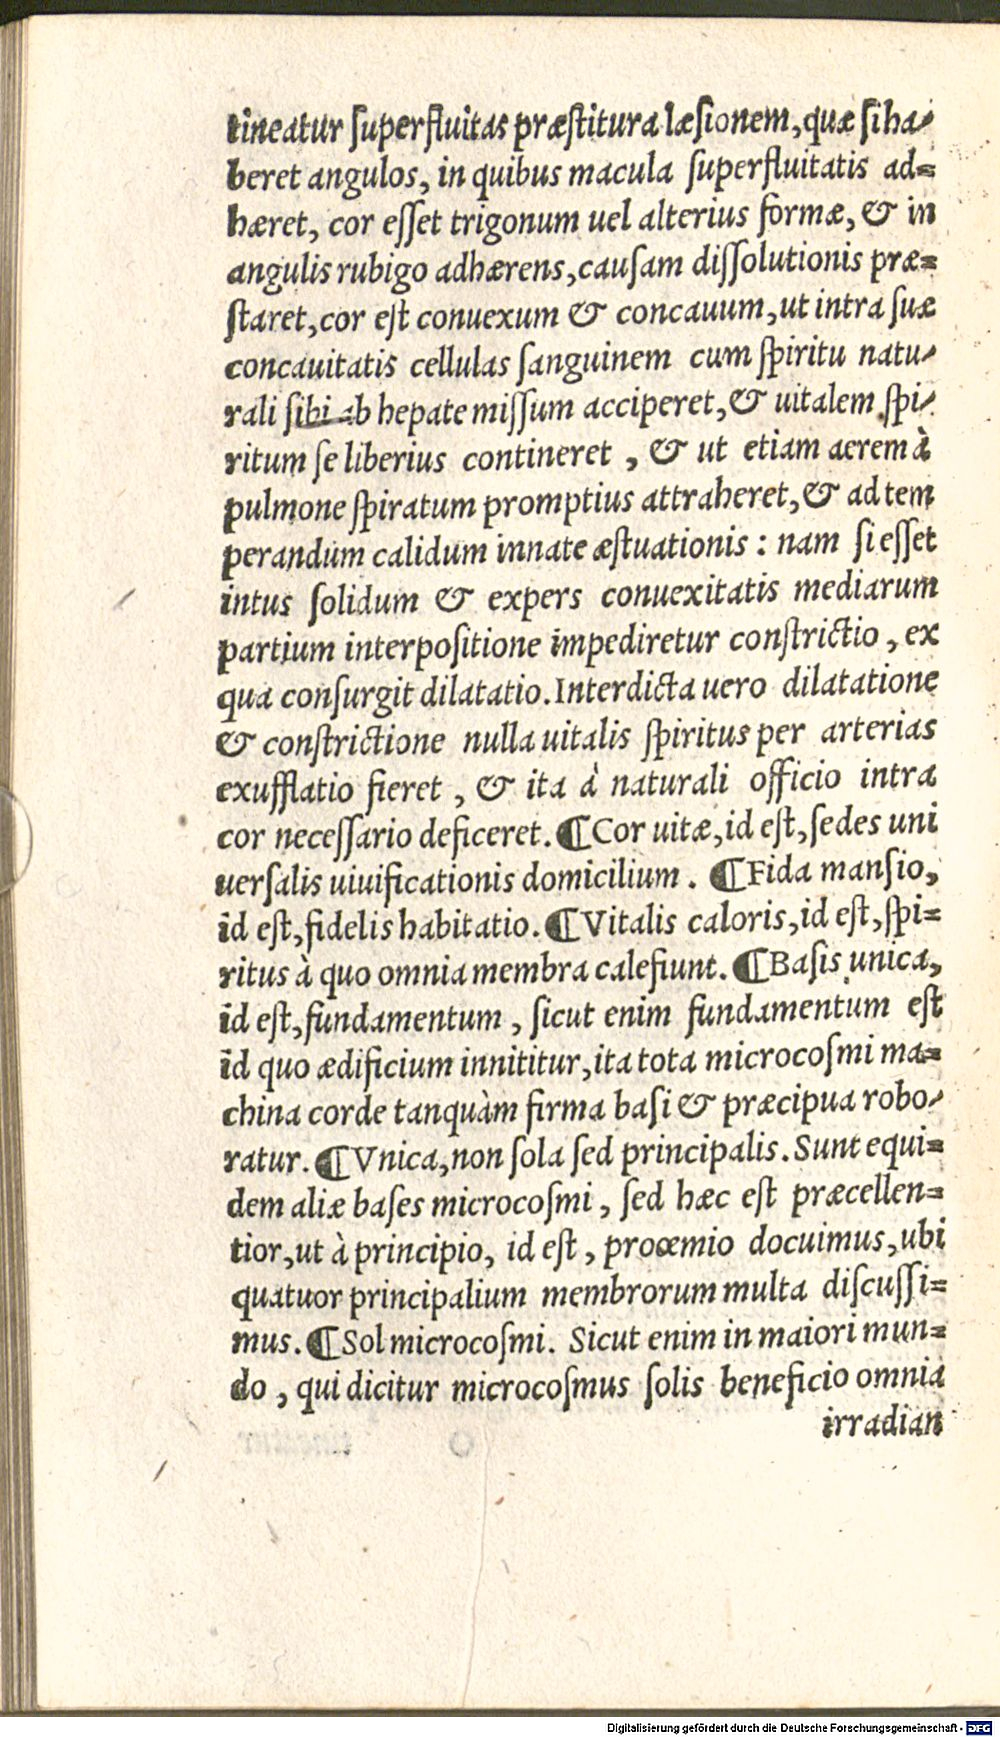 tineatur superfluitas præstitura læsionem, quæ si ha-
beret angulos, in quibus macula superfluitatis ad-
hæret, cor esset trigonum uel alterius formæ, & in
angulis rubigo adhærens, causam dissolutionis præ-
staret, cor est conuexum & concauum, ut intra suæ
concauitatis cellulas sanguinem cum spiritu natu-
rali sibi ab hepate missum acciperet, & uitalem spi-
ritum se liberius contineret, & ut etiam aerem à
pulmone spiratum promptius attraheret, & ad tem
perandum calidum innate æstuationis: nam si esset
intus solidum & expers conuexitatis mediarum
partium interpositione impediretur constrictio, ex
qua consurgit dilatatio. Interdicta uero dilatatione
& constrictione nulla uitalis spiritus per arterias
exufflatio fieret, & ita à naturali officio intra
cor necessario deficeret. ¶ Cor uitæ, id est, sedes uni
uersalis uiuificationis domicilium. ¶ Fida mansio,
id est, fidelis habitatio. ¶ Vitalis caloris, id est, spi-
ritus à quo omnia membra calefiunt. ¶ Basis unica,
id est, fundamentum, sicut enim fundamentum est
id quo ædificium innititur, ita tota microcosmi ma-
china corde tanquàm firma basi & præcipua robo-
ratur. ¶ Vnica, non sola sed principalis. Sunt equi-
dem aliæ bases microcosmi, sed hæc est præcellen-
tior, ut à principio, id est, procemio docuimus, ubi
quatuor principalium membrorum multa discussi-
mus. ¶ Sol microcosmi. Sicut enim in maiori mun-
do, qui dicitur microcosmus solis beneficio omnia
irradian
Digitalisierung gefördert durch die Deutsche Forschungsgemeinschaft - DFG